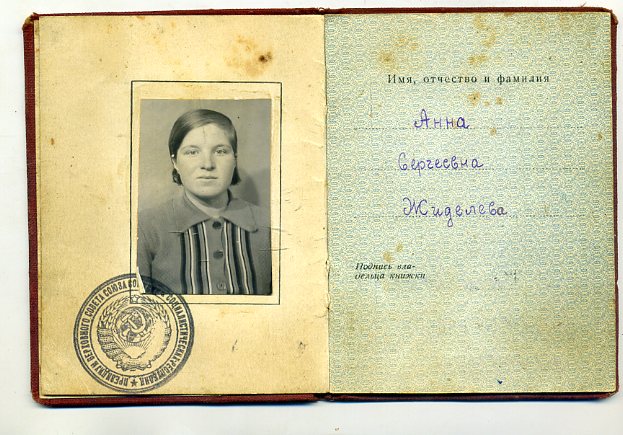 ПРЕЗИДИУМ ВЕРХОВНОГО СОВЕТА СОЮЗА СОВ. СОЦИАЛИСТИЧЕСКИХ РЕСПУБЛИК
Имя, отчество и фамилия
Анна
Сергеевна
Жиделева
Подпись вла-
дельца книжки